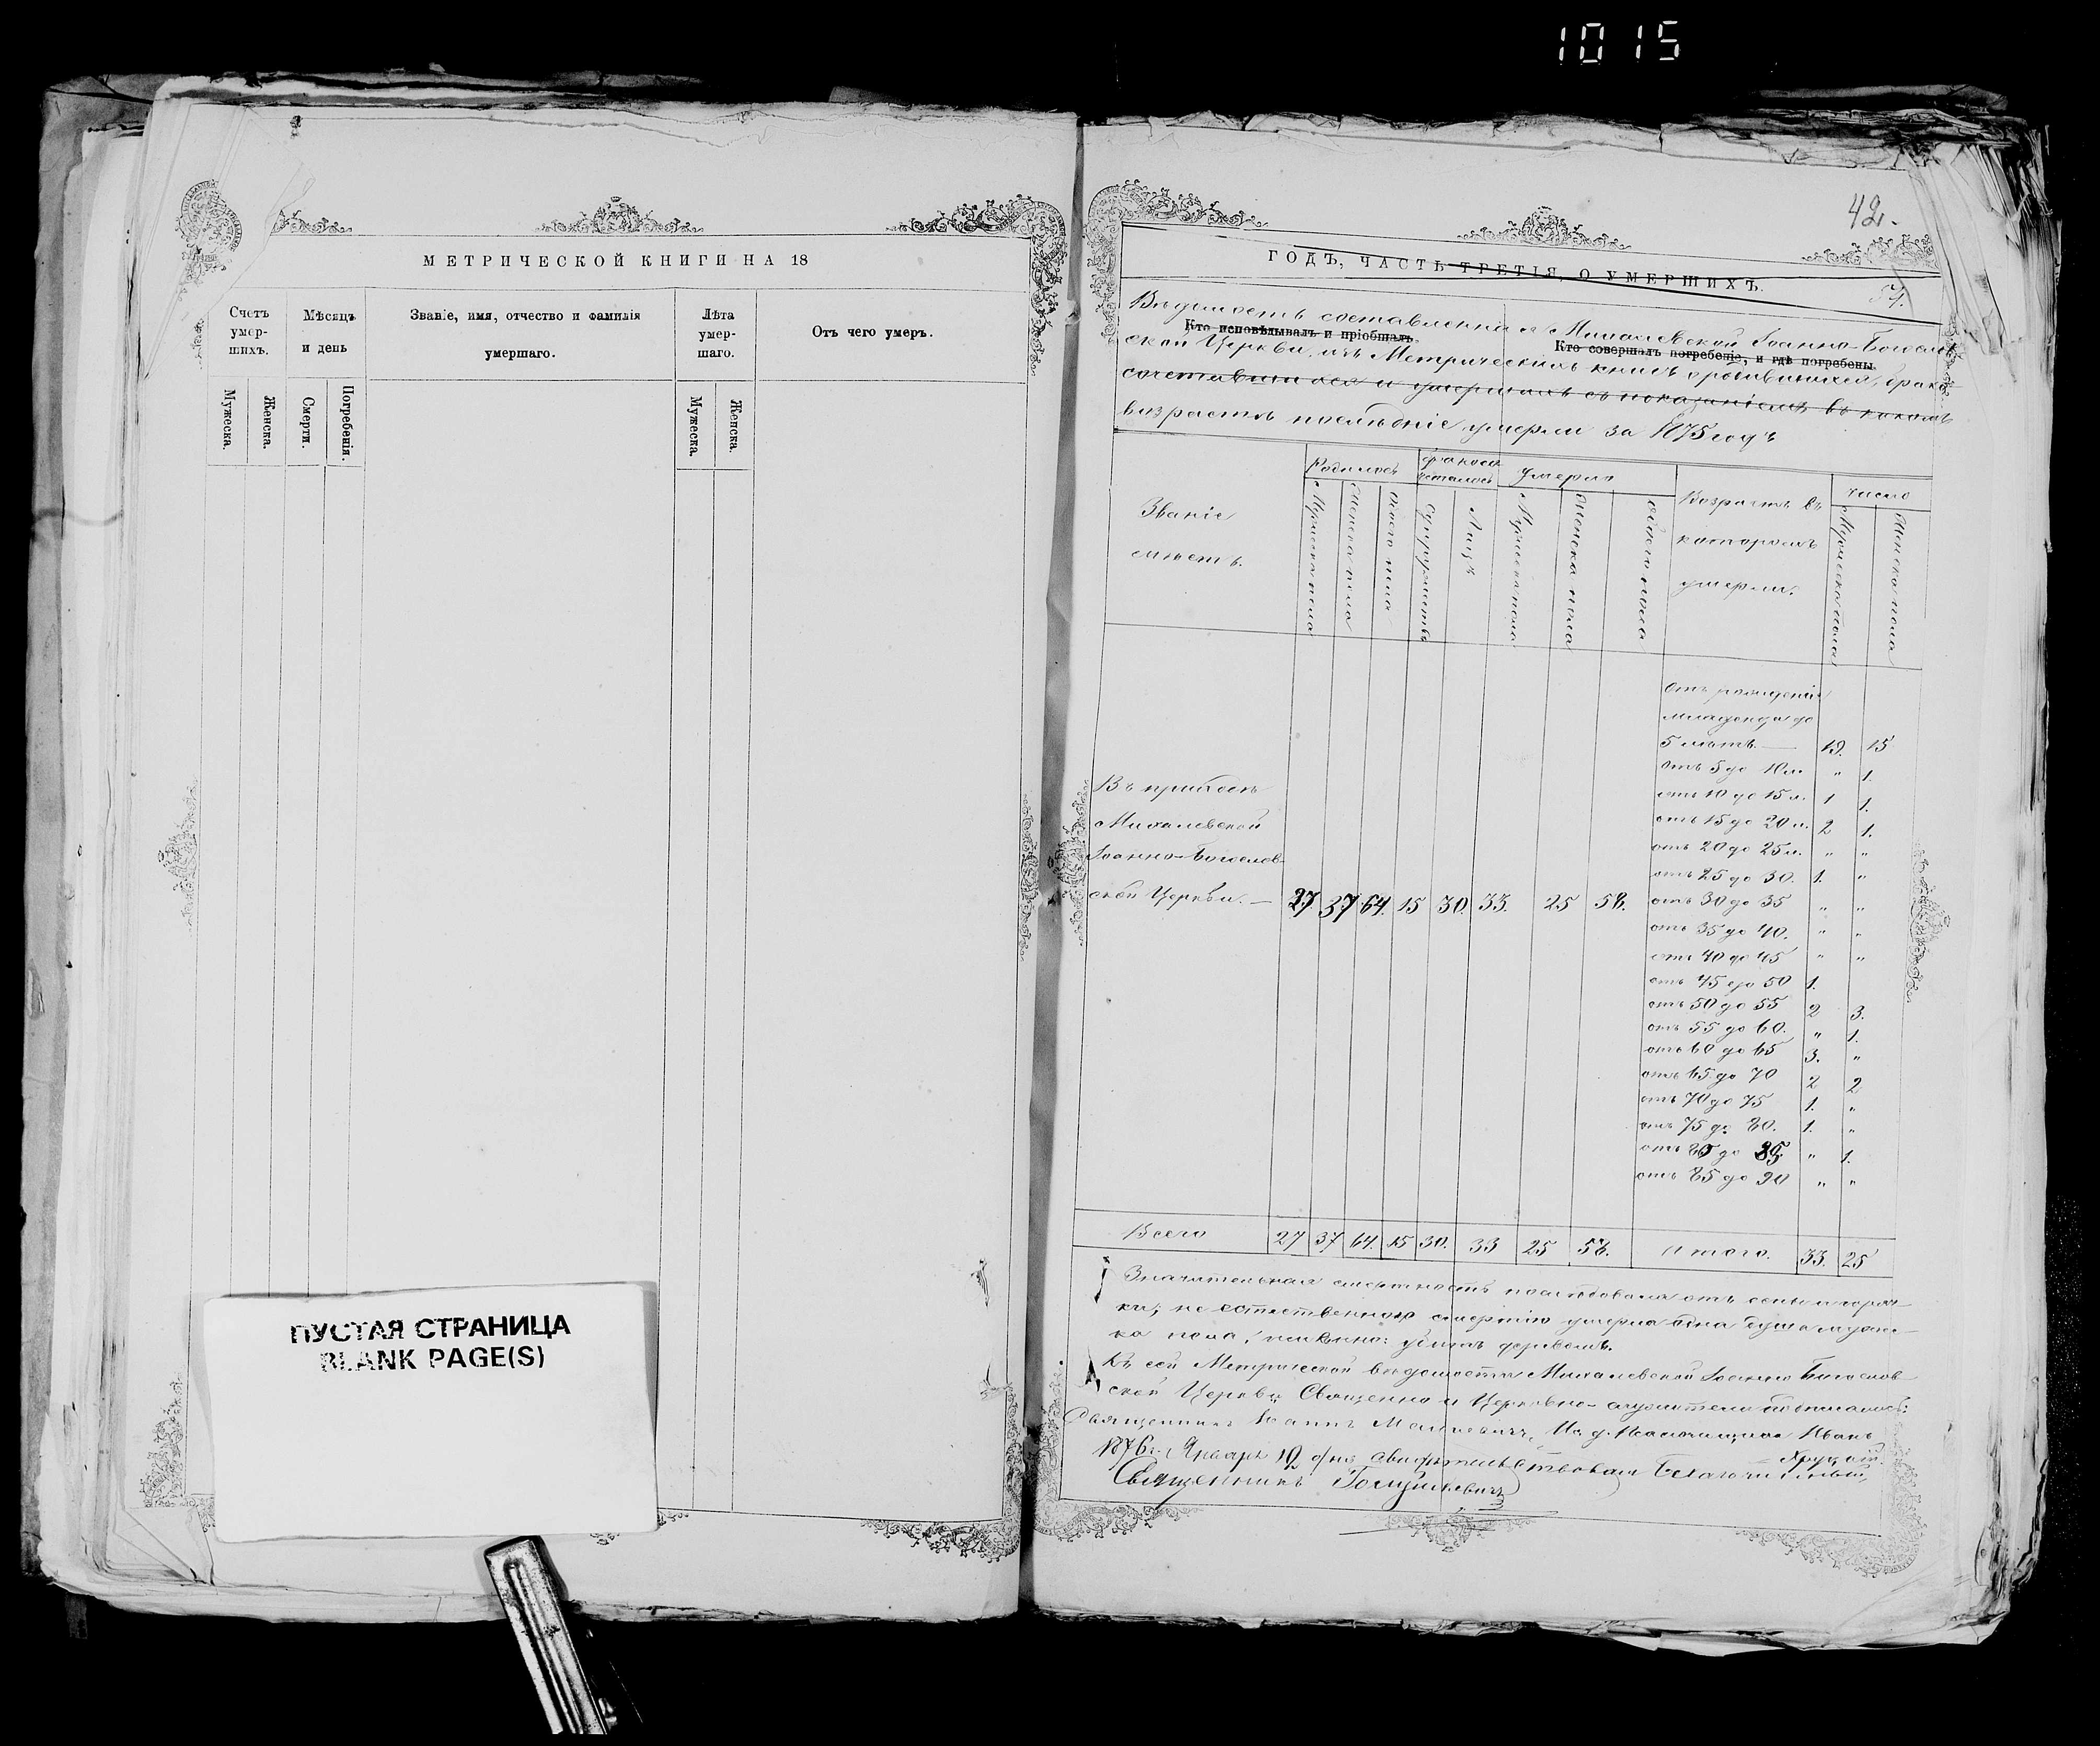 1015
МЕТРИЧЕСКОЙ КНИГИ НА 18
Счетъ умер- шихъ.
Мѣсяцъ и день
Званіе, имя, отчество и фамилія умершаго.
Лѣта умер- шаго.
Отъ чего умеръ.
Мужеска. Женска. Смерти. Погребенія. Мужеска. Женска.
ПУСТАЯ СТРАНИЦА
BLANK PAGE(S)
42.
ГОДЪ, ЧАСТЬ ТРЕТІЯ, О УМЕРШИХЪ.
Вѣдомость составленная Михалевской Іоанно-Богослов-
Кто исповѣдывалъ и пріобщалъ.
Кто совершалъ погребеніе, и гдѣ погребены.
ской Церкви, изъ Метрическихъ книгъ о родившихся, брако-
сочетавшихся и умершихъ съ показаніемъ въ какомъ
возрастѣ послѣдніе умерли за 1875 годъ
Званіе мѣстъ.
Родилось
бракосочеталось
Умерло
Возрастъ въ которомъ умерли.
Число
Мужеска пола Женска пола Обоего пола Супружествъ Лицъ Мужеска пола Женска пола Обоего пола Мужеска пола Женска пола
отъ рожденія
младенца до
5 лѣтъ — 19. 15
отъ 5 до 10 л. " 1.
отъ 10 до 15 л. 1 1.
отъ 15 до 20 л. 2 1.
отъ 20 до 25 л. " "
отъ 25 до 30. 1. "
отъ 30 до 35 " "
отъ 35 до 40. " "
отъ 40 до 45 " "
отъ 45 до 50 1.
отъ 50 до 55 2 3.
отъ 55 до 60. " 1.
отъ 60 до 65 3. "
отъ 65 до 70 2 2
отъ 70 до 75 1. "
отъ 75 до 80. 1. "
отъ 80 до 85. " 1.
отъ 85 до 90 " "
Въ приходѣ
Михалевской
Іоанно-Богослов-
ской Церкви. — 27. 37 64. 15 30. 33. 25 58.
Всего 27 37 64. 15 30. 33 25 58. Итого. 33. 25
Значительная смертность послѣдовала отъ оспы и горяч-
ки; не естественною смертію умерла одна душа муже-
ска пола, именно: убитъ деревомъ.
Къ сей Метрической вѣдомости Михалевской Іоанно Богослов-
ской Церкви Священно и Церковно-служители подписались:
Священникъ Іоаннъ Иванъ
1876 г. Января 12 дня свидѣтельствовалъ Благочинный
Священникъ